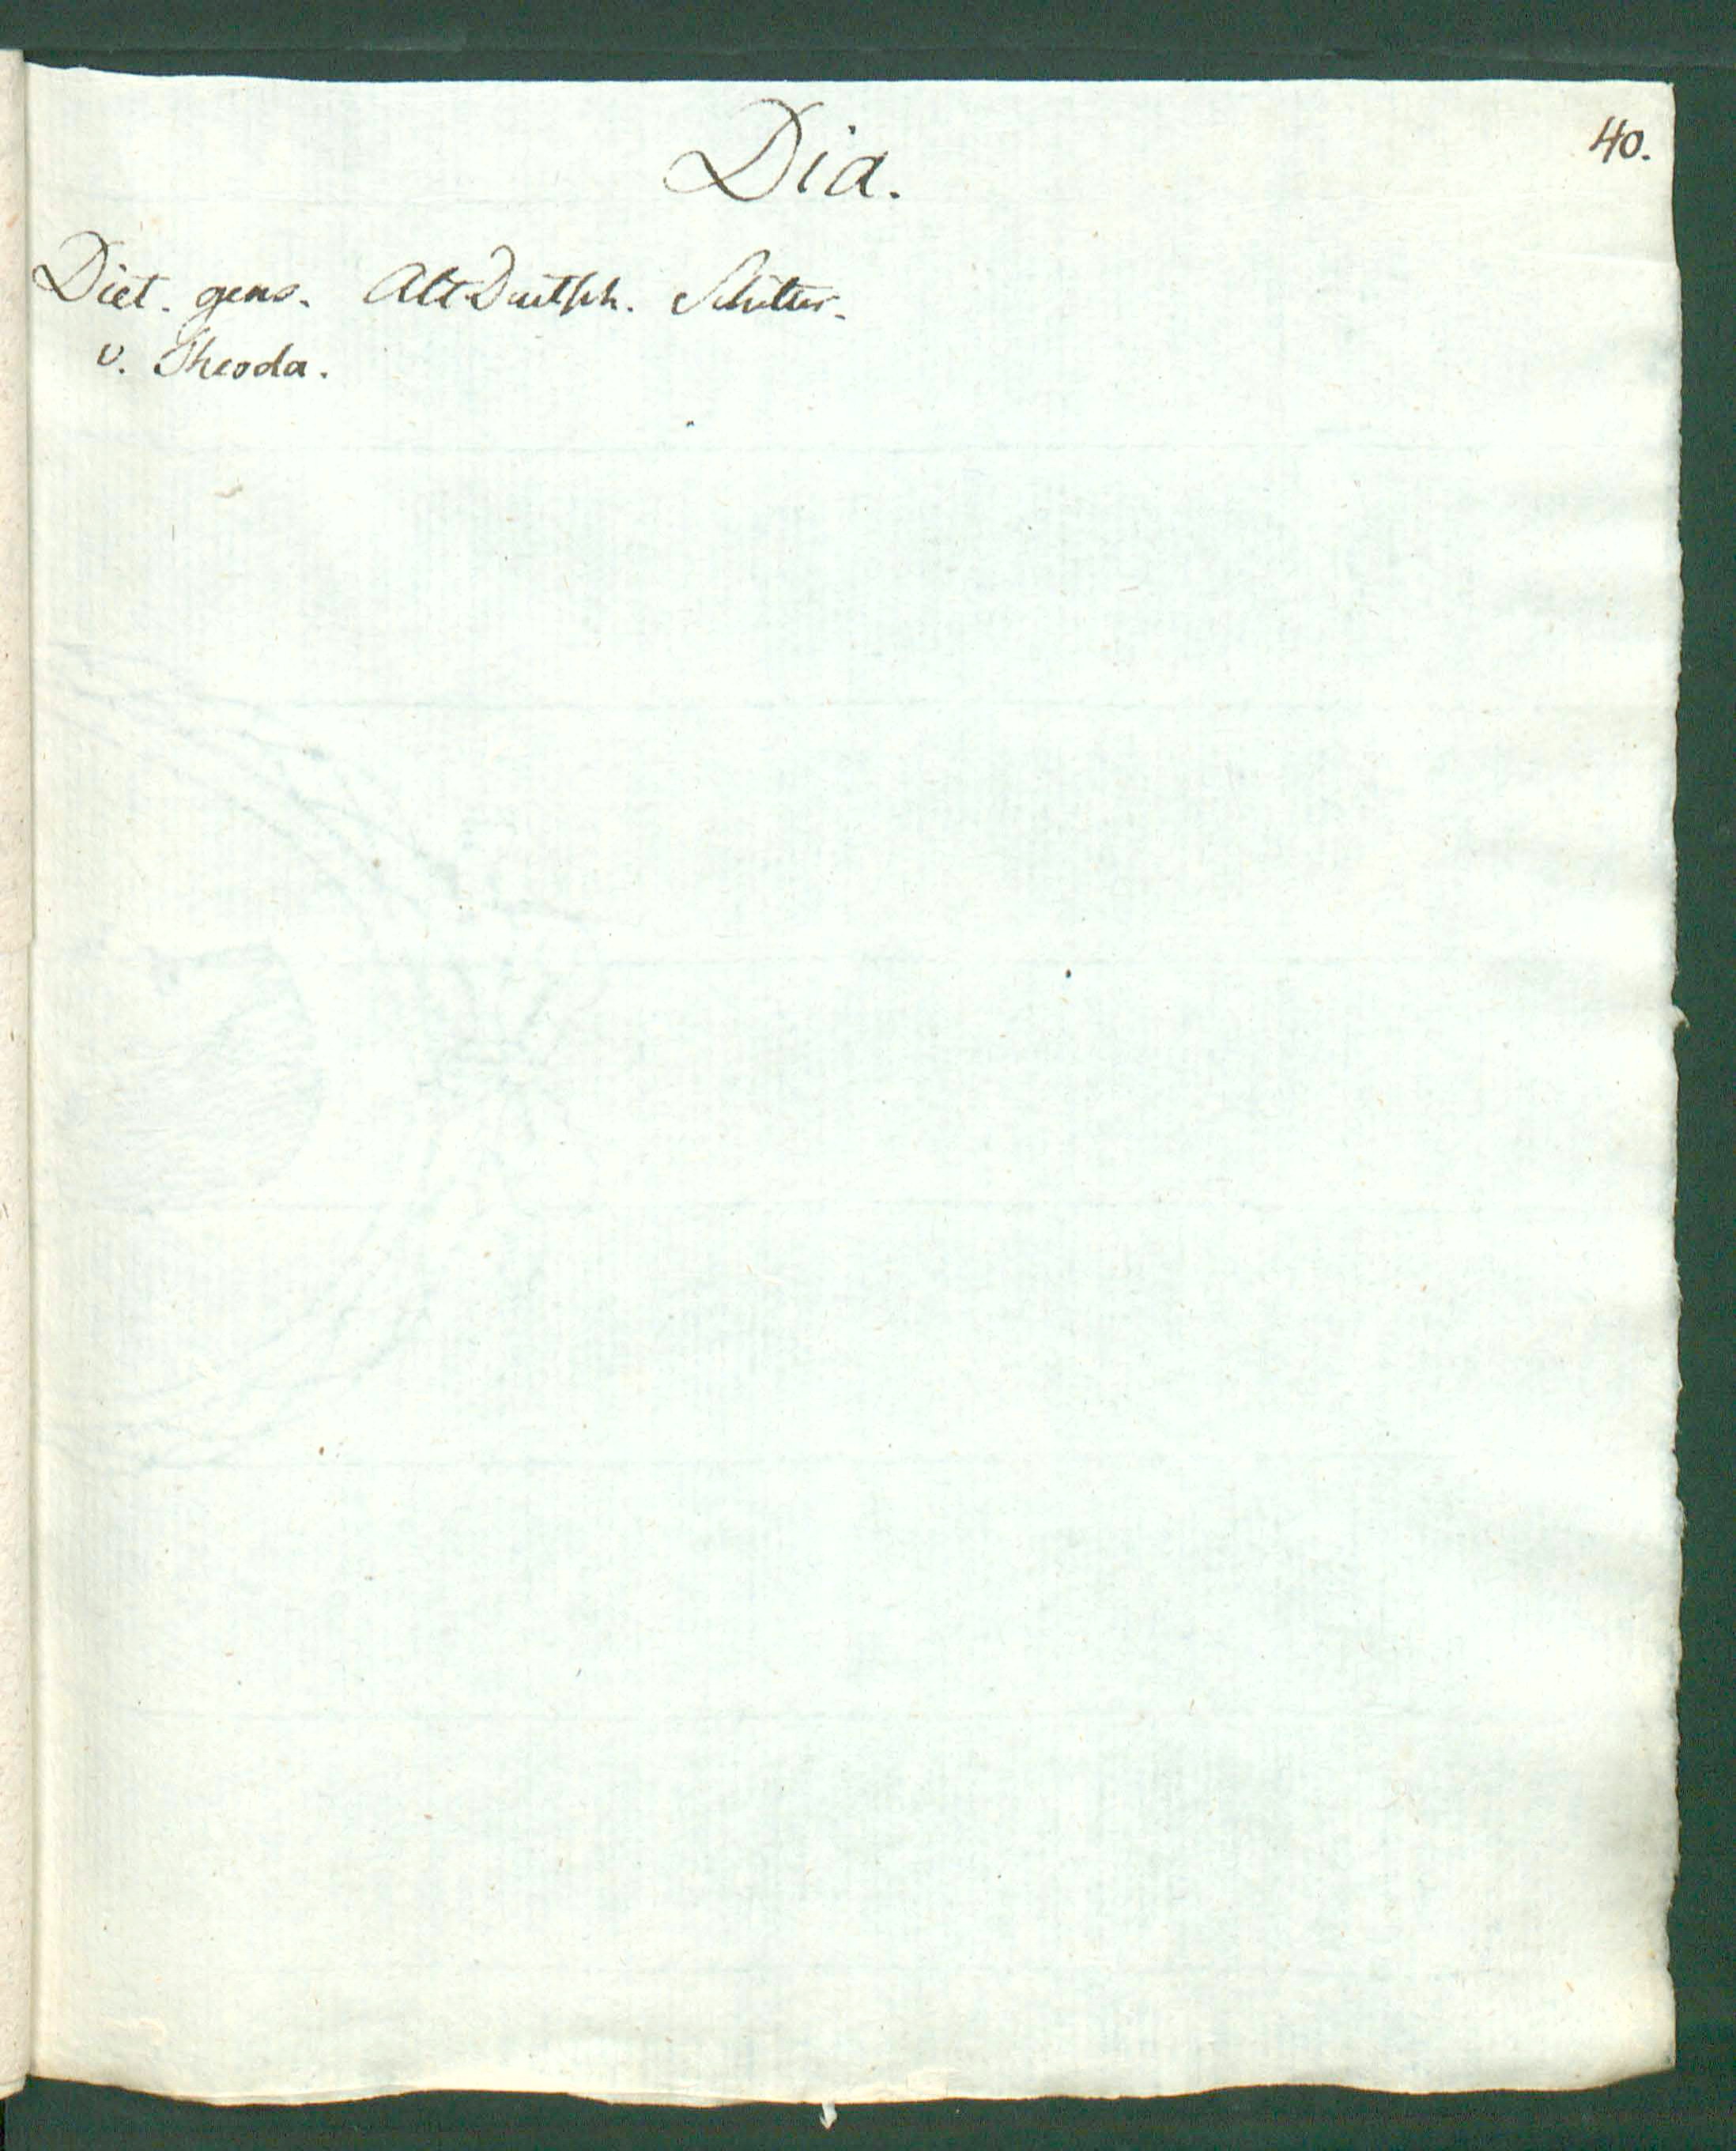 40.
Dia.
Diet. gens. AltDeutsch. Schilter.
v. Theoda.